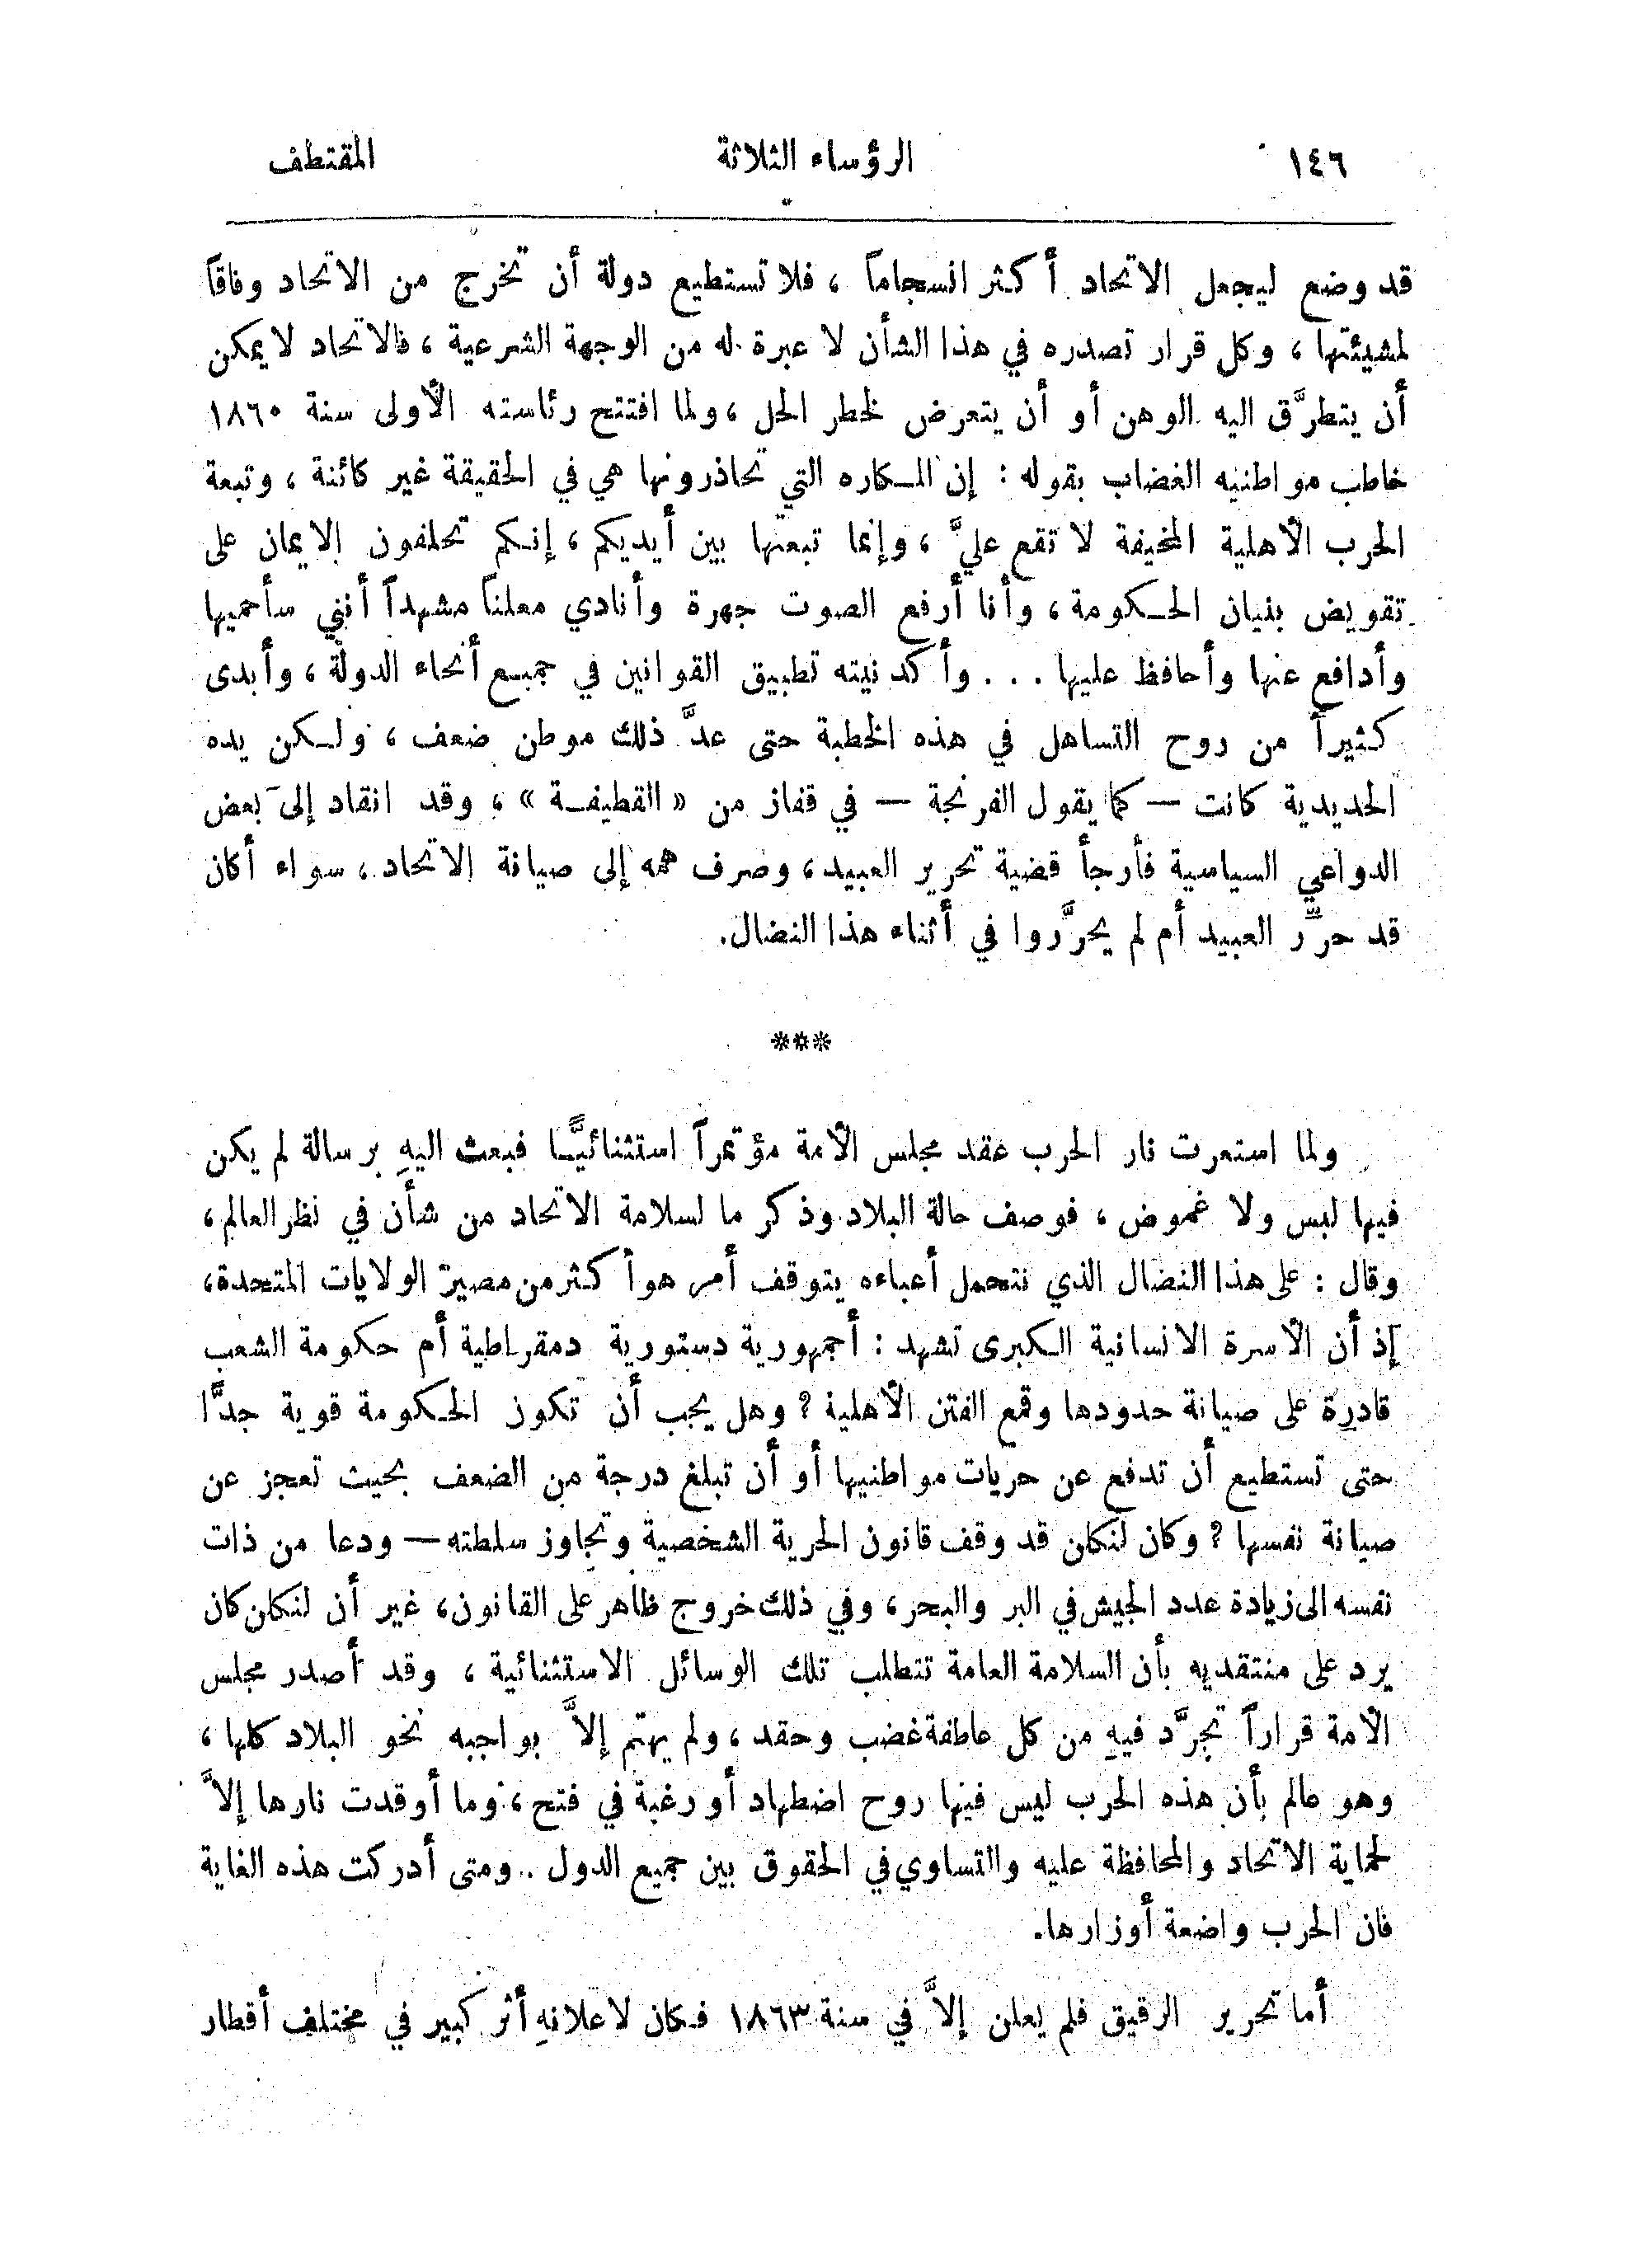 ١٤٦ الرؤساء الثلاثة المقتطف
قد وضع ليجعل الاتحاد أكثر انسجاماً ، فلا تستطيع دولة أن تخرج من الاتحاد وفاقاً
لمشيئتها ، وكل قرار تصدره في هذا الشأن لا عبرة له من الوجهة الشرعية ، فالاتحاد لا يمكن
أن يتطرَّق اليه الوهن أو أن يتعرض لخطر الحل ، ولما افتتح رئاسته الأولى سنة ١٨٦٠
خاطب مواطنيه الغضاب بقوله : إن المكاره التي تحاذرونها هي في الحقيقة غير كائنة ، وتبعة
الحرب الأهلية المخيفة لا تقع عليَّ ، وإنما تبعتها بين أيديكم ، إنكم تحلفون الايمان على
تقويض بنيان الحكومة ، وأنا أرفع الصوت جهرة وأنادي معلناً مشهداً أنني سأحميها
وأدافع عنها وأحافظ عليها . . . وأكد نيته تطبيق القوانين في جميع أنحاء الدولة ، وأبدى
كثيراً من روح التساهل في هذه الخطبة حتى عدَّ ذلك موطن ضعف ، ولكن يده
الحديدية كانت — كما يقول الفرنجة — في قفاز من « القطيفة » ، وقد انقاد إلى بعض
الدواعي السياسية فأرجأ قضية تحرير العبيد ، وصرف همه إلى صيانة الاتحاد ، سواء أكان
قد حرِّر العبيد أم لم يحرَّروا في أثناء هذا النضال.
***
ولما استعرت نار الحرب عقد مجلس الأمة مؤتمراً استثنائيًّا فبعث اليهِ برسالة لم يكن
فيها لبس ولا غموض ، فوصف حالة البلاد وذكر ما لسلامة الاتحاد من شأن في نظر العالم ،
وقال : على هذا النضال الذي نتحمل أعباءه يتوقف أمر هو أكثر من مصير الولايات المتحدة ،
إذ أن الأسرة الانسانية الكبرى تشهد : أجمهورية دستورية دمقراطية أم حكومة الشعب
قادرة على صيانة حدودها وقمع الفتن الأهلية ؟ وهل يجب أن تكون الحكومة قوية جدًّا
حتى تستطيع أن تدفع عن حريات مواطنيها أو أن تبلغ درجة من الضعف بحيث تعجز عن
صيانة نفسها ؟ وكان لنكان قد وقف قانون الحرية الشخصية وتجاوز سلطته — ودعا من ذات
نفسه الى زيادة عدد الجيش في البر والبحر ، وفي ذلك خروج ظاهر على القانون ، غير أن لنكان كان
يرد على منتقديه بأن السلامة العامة تتطلب تلك الوسائل الاستثنائية ، وقد أصدر مجلس
الأمة قراراً تجرَّد فيهِ من كل عاطفة غضب وحقد ، ولم يهتم إلاَّ بواجبه نحو البلاد كلها ،
وهو عالم بأن هذه الحرب ليس فيها روح اضطهاد أو رغبة في فتح ، وما أوقدت نارها إلاَّ
لحماية الاتحاد والمحافظة عليه والتساوي في الحقوق بين جميع الدول .. ومتى أدركت هذه الغاية
فان الحرب واضعة أوزارها.
أما تحرير الرقيق فلم يعلن إلاَّ في سنة ١٨٦٣ فكان لاعلانهِ أثر كبير في مختلف أقطار